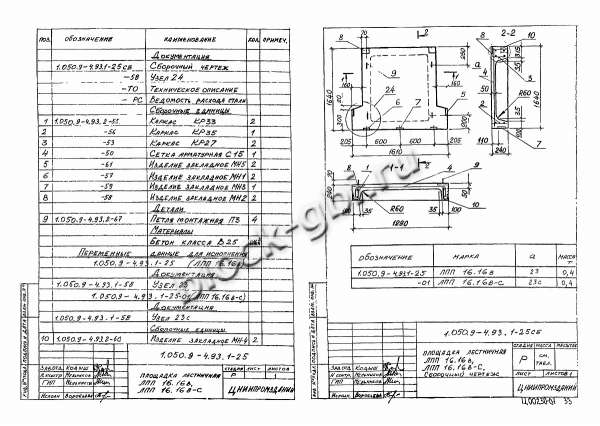 ПОЗ. ОБОЗНАЧЕНИЕ НАИМЕНОВАНИЕ КОЛ. ПРИМЕЧ.
Документация
1.050.9-4.93.1-25СБ Сборочный чертеж
-58 Узел 24
-ТО Техническое описание
-РС Ведомость расхода стали
Сборочные единицы
1 1.050.9-4.93.2-55 Каркас КР33 2
2 -56 Каркас КР35 1
3 -53 Каркас КР27 2
4 -50 Сетка арматурная С15 1
5 -61 Изделие закладное МН5 2
6 -57 Изделие закладное МН1 2
7 -59 Изделие закладное МН3 1
8 -58 Изделие закладное МН2 2
Детали
9 1.050.9-4.93.2-67 Петля монтажная П3 4
Материалы
Бетон класса В25
Переменные данные для исполнения
1.050.9-4.93.1-25 (ЛПП 16.16в)
Документация
1.050.9-4.93.1-58 Узел 23
1.050.9-4.93.1-25-01 (ЛПП 16.16в-С)
Документация
1.050.9-4.93.1-58 Узел 23с
Сборочные единицы
10 1.050.9-4.93.2-60 Изделие закладное МН4 2
1.050.9-4.93.1-25
Площадка лестничная
ЛПП 16.16в,
ЛПП 16.16в-С
СТАДИЯ ЛИСТ ЛИСТОВ
Р 1
ЦНИИПРОМЗДАНИЙ
2-2
1-1
1640
1610
205 600 600 205
110
240
1280
R60
ОБОЗНАЧЕНИЕ МАРКА а МАССА Т
1.050.9-4.93.1-25 ЛПП 16.16в 23 0,4
-01 ЛПП 16.16в-С 23с 0,4
1.050.9-4.93.1-25СБ
Площадка лестничная
ЛПП 16.16в,
ЛПП 16.16в-С.
Сборочный чертеж
СТАДИЯ МАССА МАСШТАБ
Р СМ. ТАБЛ.
ЛИСТ ЛИСТОВ 1
ЦНИИПРОМЗДАНИЙ
block-gbi.ru